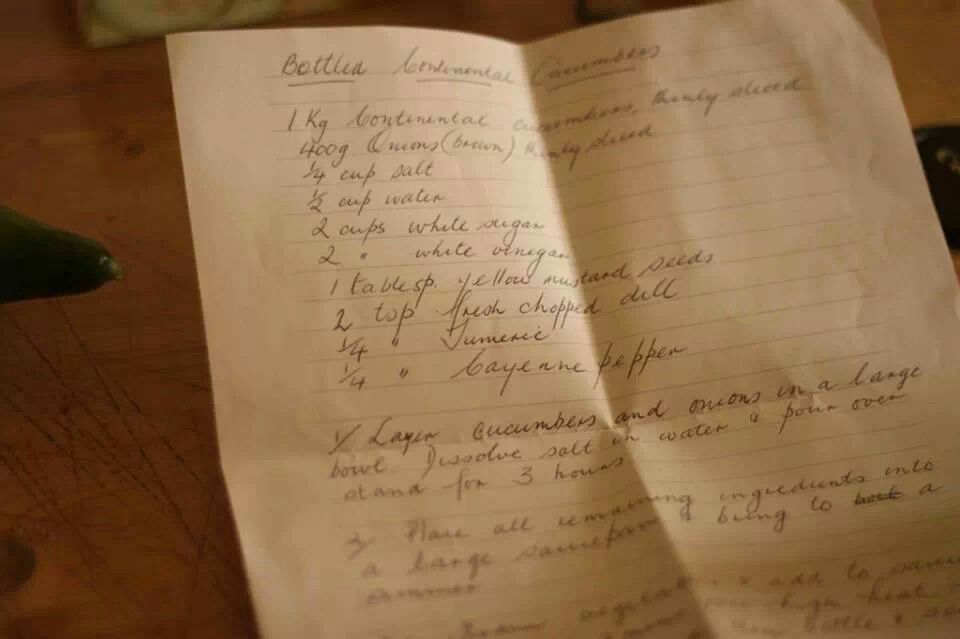 Bottled Continental Cucumbers
1 Kg Continental cucumbers, thinly sliced
400g Onions (brown) thinly sliced
1/4 cup salt
1/2 cup water
2 cups white sugar
2 " white vinegar
1 tablesp. yellow mustard seeds
2 tsp fresh chopped dill
1/4 " Tumeric
1/4 " Cayenne pepper
1/ Layer cucumbers and onions in a large
bowl. Dissolve salt in water & pour over
stand for 3 hours
2/ Place all remaining ingredients into
a large saucepan & bring to a
simmer
vegetables & add to
high heat
bottle &